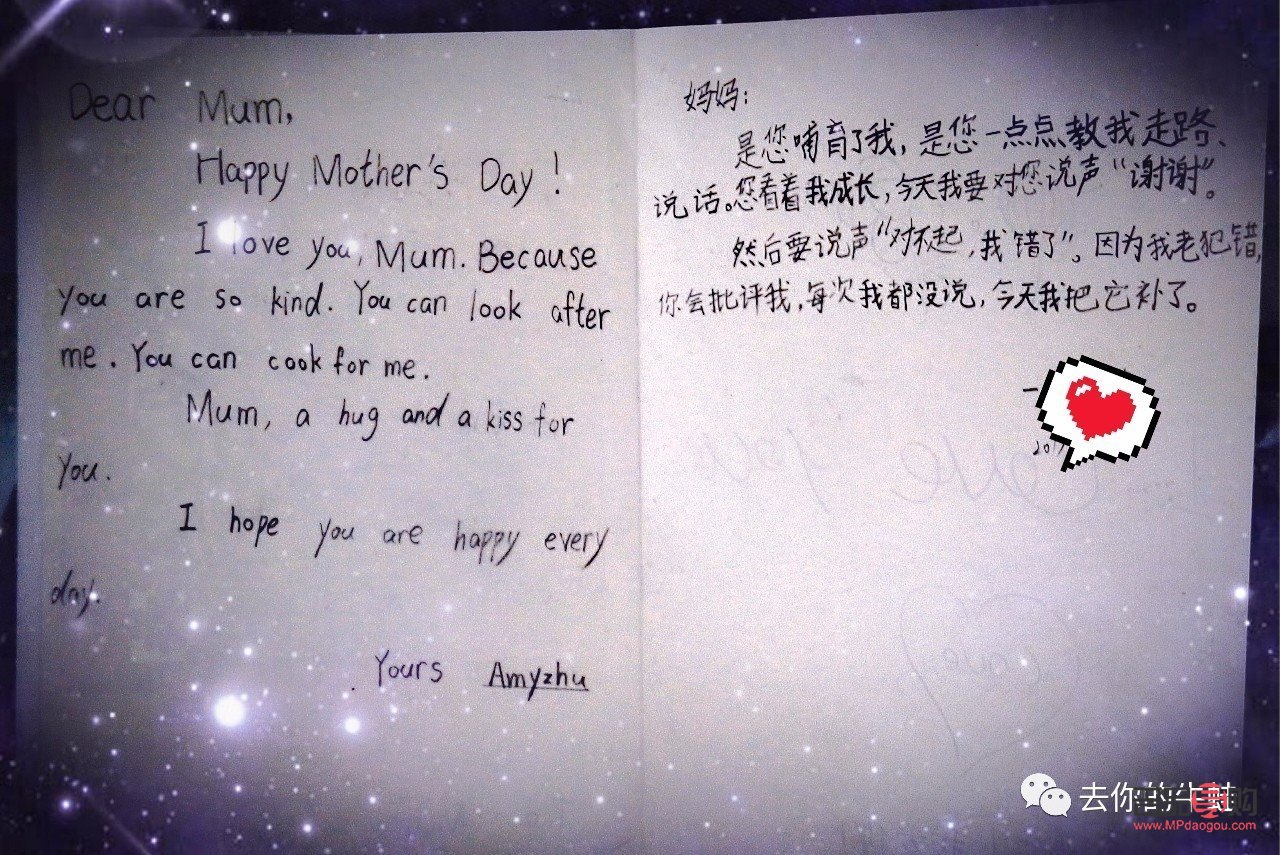 Dear Mum,
Happy Mother's Day!
I love you, Mum. Because
you are so kind. You can look after
me. You can cook for me.
Mum, a hug and a kiss for
you.
I hope you are happy every
day.
Yours Amyzhu
妈妈:
是您哺育了我,是您一点点教我走路、
说话。您看着我成长,今天我要对您说声“谢谢”。
然后要说声“对不起,我错了”。因为我老犯错,
你会批评我,每次我都没说,今天我把它补了。
201
去你的牛蛙
www.MPdaogou.com